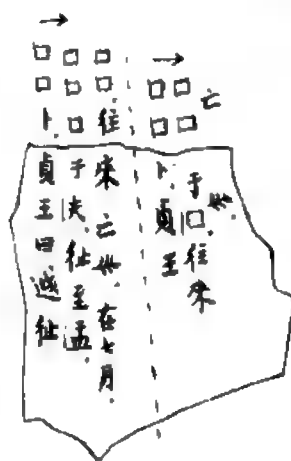 □□卜貞王曰征
□□□于夫征至盂
□□往來亡𡿧在七月
□□卜貞王
□□于□往來
亡𡿧